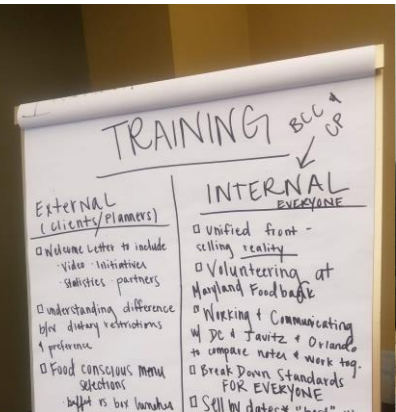 TRAINING
BCC &
CP
External
(clients/planners)
Welcome Letter to include
· Video · Initiatives
· Statistics · partners
understanding difference
b/w dietary restrictions
& preference
Food conscious menu
selections
· buffet vs box lunches
INTERNAL
EVERYONE
unified front -
selling reality
Volunteering at
Maryland Foodbank
Working & Communicating
w/ DC & Javitz & Orlando
to compare notes & work tog.
Break Down Standards
FOR EVERYONE
Sell by dates* "best"